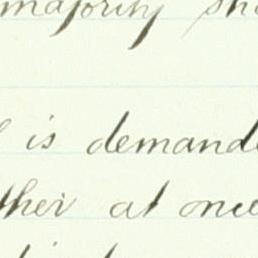 majority sh
is demande
ther at once